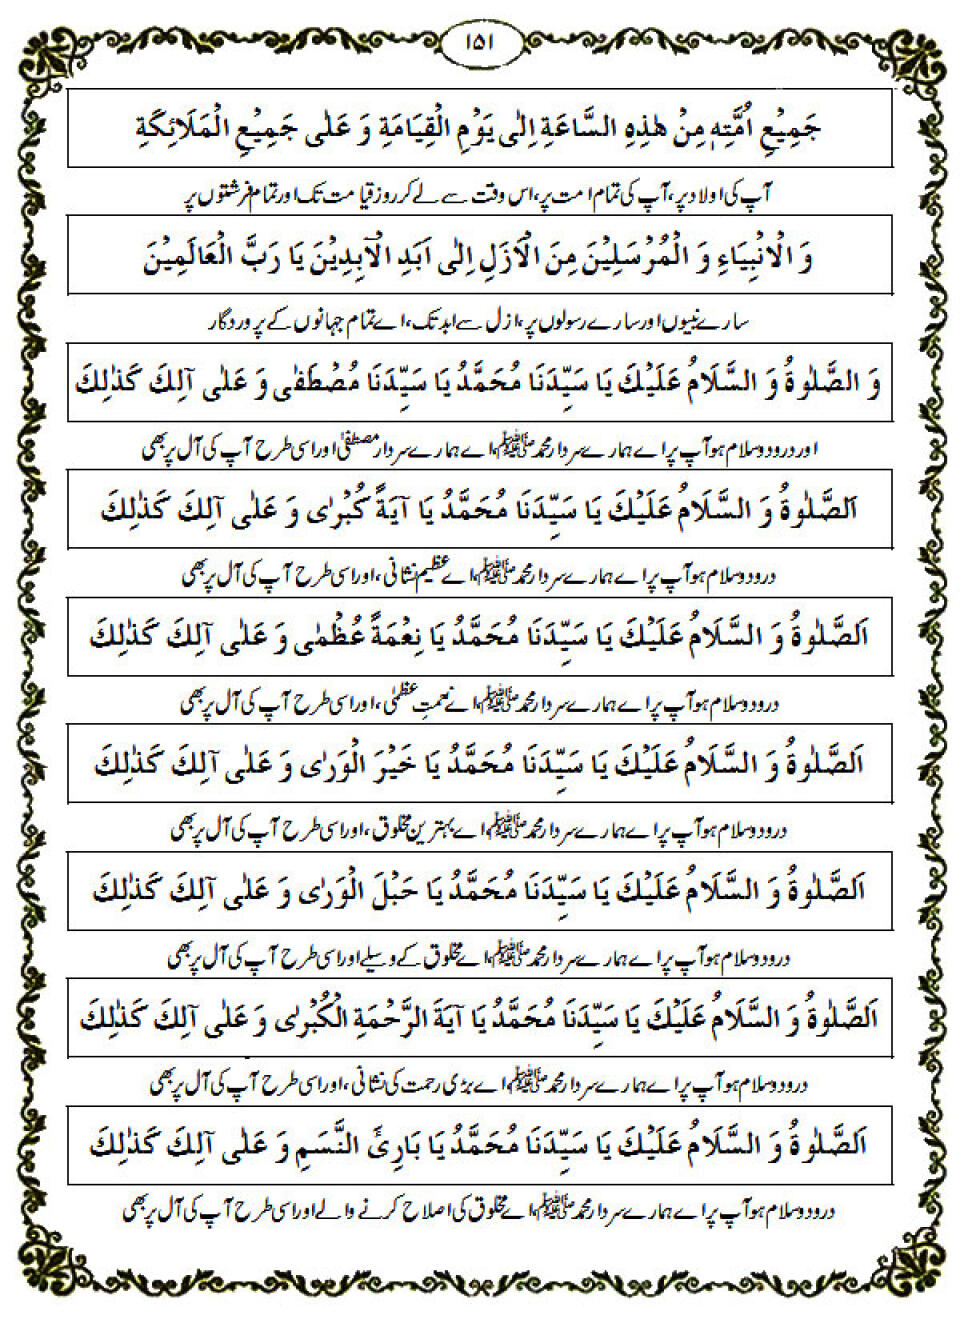 ١٥١
جَمِيْعِ اُمَّتِهٖ مِنْ هٰذِهِ السَّاعَةِ اِلٰى يَوْمِ الْقِيَامَةِ وَ عَلٰى جَمِيْعِ الْمَلَائِكَةِ
آپ کی اولاد پر، آپ کی تمام امت پر، اس وقت سے لے کر روز قیامت تک اور تمام فرشتوں پر
وَ الْاَنْبِيَاءِ وَ الْمُرْسَلِيْنَ مِنَ الْاَزَلِ اِلٰى اَبَدِ الْآبِدِيْنَ يَا رَبَّ الْعَالَمِيْنَ
سارے نبیوں اور سارے رسولوں پر، ازل سے ابد تک، اے تمام جہانوں کے پروردگار
وَ الصَّلٰوةُ وَ السَّلَامُ عَلَيْكَ يَا سَيِّدَنَا مُحَمَّدُ يَا سَيِّدَنَا مُصْطَفٰى وَ عَلٰى آلِكَ كَذٰلِكَ
اور درود و سلام ہو آپ پر اے ہمارے سردار محمد ﷺ، اے ہمارے سردار مصطفیٰ اور اسی طرح آپ کی آل پر بھی
اَلصَّلٰوةُ وَ السَّلَامُ عَلَيْكَ يَا سَيِّدَنَا مُحَمَّدُ يَا آيَةً كُبْرٰى وَ عَلٰى آلِكَ كَذٰلِكَ
درود و سلام ہو آپ پر اے ہمارے سردار محمد ﷺ، اے عظیم نشانی، اور اسی طرح آپ کی آل پر بھی
اَلصَّلٰوةُ وَ السَّلَامُ عَلَيْكَ يَا سَيِّدَنَا مُحَمَّدُ يَا نِعْمَةً عُظْمٰى وَ عَلٰى آلِكَ كَذٰلِكَ
درود و سلام ہو آپ پر اے ہمارے سردار محمد ﷺ، اے نعمتِ عظمیٰ، اور اسی طرح آپ کی آل پر بھی
اَلصَّلٰوةُ وَ السَّلَامُ عَلَيْكَ يَا سَيِّدَنَا مُحَمَّدُ يَا خَيْرَ الْوَرٰى وَ عَلٰى آلِكَ كَذٰلِكَ
درود و سلام ہو آپ پر اے ہمارے سردار محمد ﷺ، اے بہترین مخلوق، اور اسی طرح آپ کی آل پر بھی
اَلصَّلٰوةُ وَ السَّلَامُ عَلَيْكَ يَا سَيِّدَنَا مُحَمَّدُ يَا حَبْلَ الْوَرٰى وَ عَلٰى آلِكَ كَذٰلِكَ
درود و سلام ہو آپ پر اے ہمارے سردار محمد ﷺ، اے مخلوق کے وسیلے اور اسی طرح آپ کی آل پر بھی
اَلصَّلٰوةُ وَ السَّلَامُ عَلَيْكَ يَا سَيِّدَنَا مُحَمَّدُ يَا آيَةَ الرَّحْمَةِ الْكُبْرٰى وَ عَلٰى آلِكَ كَذٰلِكَ
درود و سلام ہو آپ پر اے ہمارے سردار محمد ﷺ، اے بڑی رحمت کی نشانی، اور اسی طرح آپ کی آل پر بھی
اَلصَّلٰوةُ وَ السَّلَامُ عَلَيْكَ يَا سَيِّدَنَا مُحَمَّدُ يَا بَارِئَ النَّسَمِ وَ عَلٰى آلِكَ كَذٰلِكَ
درود و سلام ہو آپ پر اے ہمارے سردار محمد ﷺ، اے مخلوق کی اصلاح کرنے والے اور اسی طرح آپ کی آل پر بھی